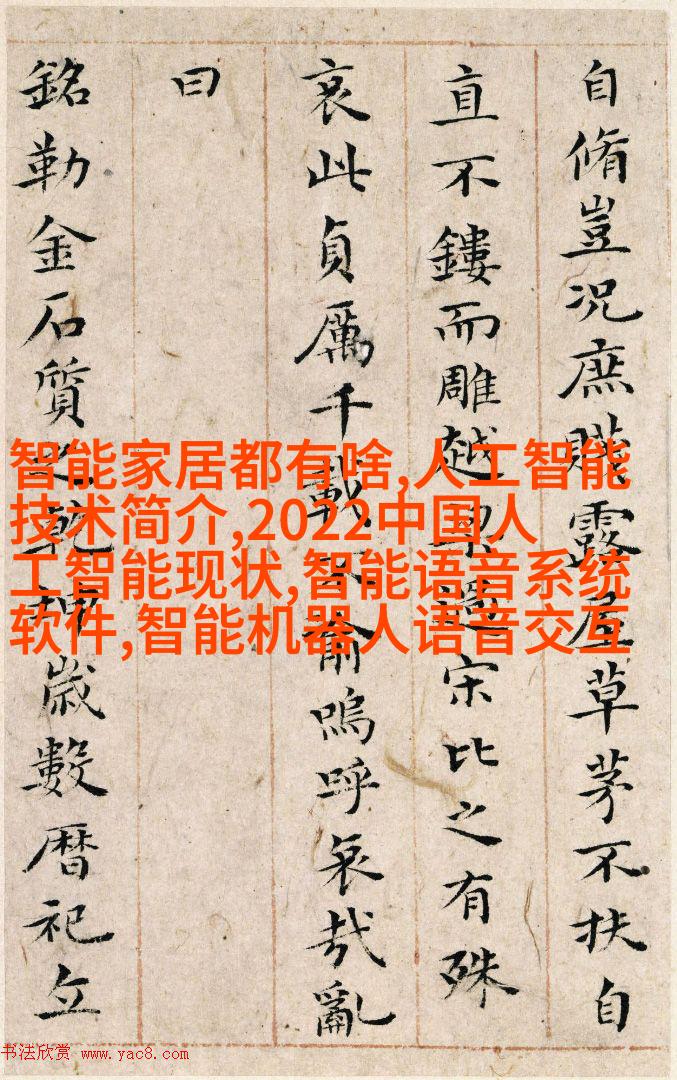 自脩豈況庶賤露屋草茅不扶自
直不鏤而雕越梁過宋比之有殊
哀此貞厲千載不渝嗚呼哀哉亂
曰
銘勒金石質之乾坤歲數暦祀立
智能家居都有啥,人工智能
技术简介,2022中国人
工智能现状,智能语音系统
软件,智能机器人语音交互
书法欣赏 www.yac8.com